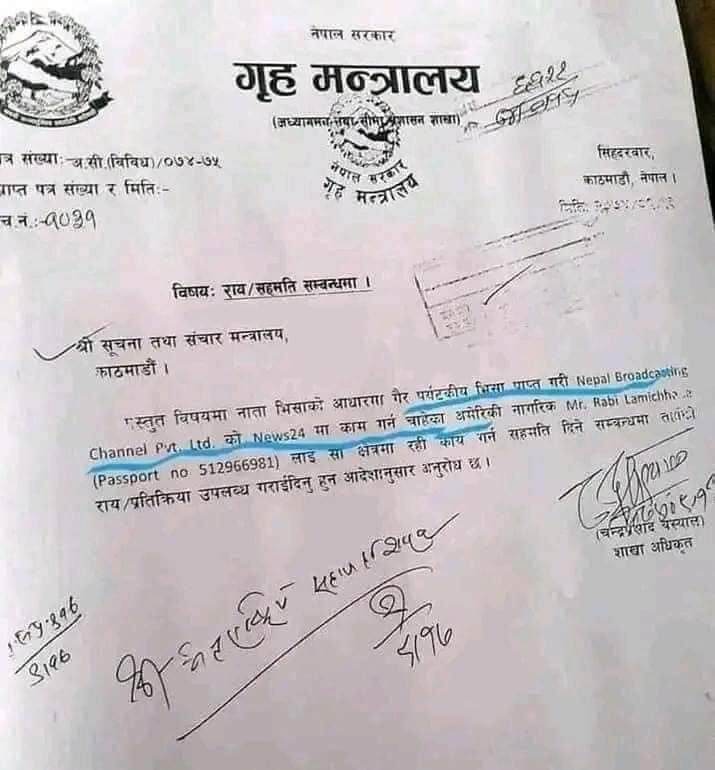 नेपाल सरकार
गृह मन्त्रालय
(अध्यागमन तथा सीमा प्रशासन शाखा)
नेपाल सरकार
गृह मन्त्रालय
त्र संख्याः अ.सी.(विविध)/०७४-७५
प्राप्त पत्र संख्या र मितिः-
च.नं.:-१०३१
सिंहदरवार,
काठमाडौं, नेपाल ।
मितिः
विषयः राय/सहमति सम्बन्धमा ।
श्री सूचना तथा संचार मन्त्रालय,
काठमाडौं ।
प्रस्तुत विषयमा नाता भिसाको आधारमा गैर पर्यटकीय भिसा प्राप्त गरी Nepal Broadcasting
Channel Pvt. Ltd. को News24 मा काम गर्न चाहेका अमेरिकी नागरिक Mr. Rabi
(Passport no 512966981) लाई सो क्षेत्रमा रही कार्य गर्न सहमति दिने सम्बन्धमा
राय/प्रतिक्रिया उपलब्ध गराईदिनु हुन आदेशानुसार अनुरोध छ ।
शाखा अधिकृत